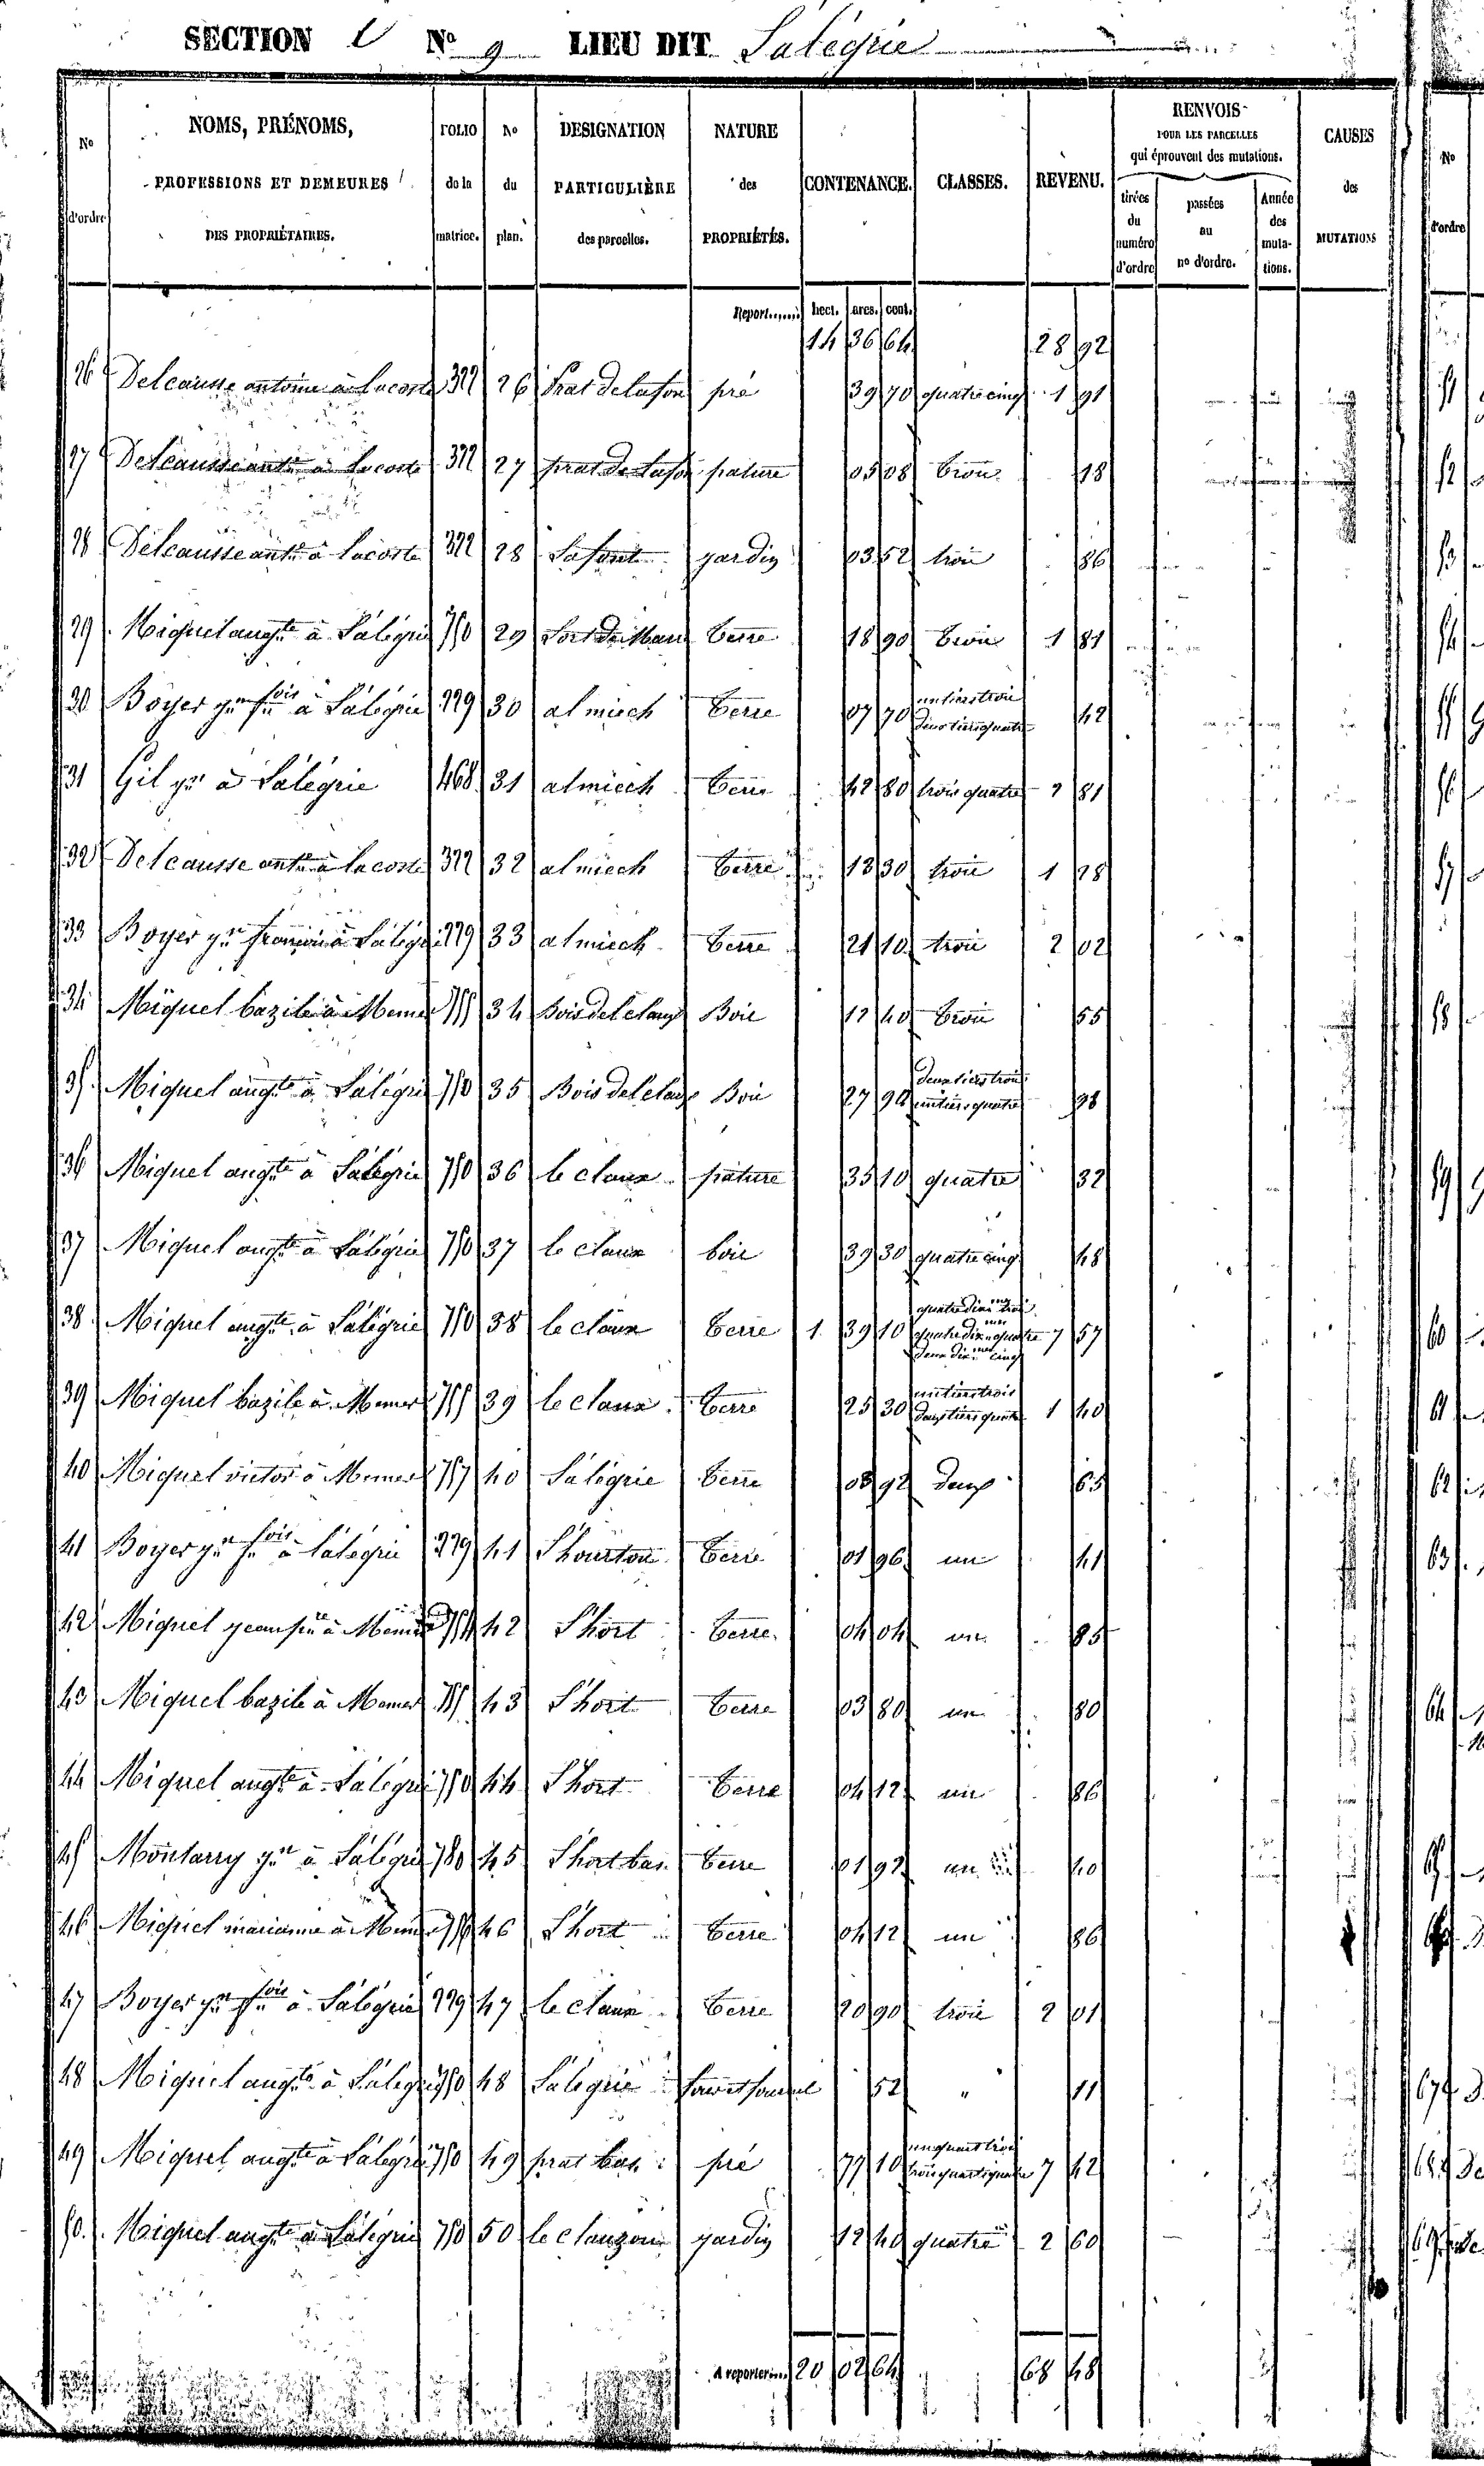 SECTION N° 9 LIEU DIT Salégrie
N° d'ordre NOMS, PRÉNOMS, PROFESSIONS ET DEMEURES DES PROPRIÉTAIRES. FOLIO de la matrice. N° du plan. DESIGNATION PARTICULIÈRE des parcelles. NATURE des PROPRIÉTÉS. CONTENANCE. CLASSES. REVENU. RENVOIS POUR LES PARCELLES qui éprouvent des mutations. tirées du numéro d'ordre passées au no d'ordre. Année des mutations. CAUSES des MUTATIONS N° d'ordre
Report...... hect. ares. cent.
14 36 64 28 92
26 Delcausse antoine à Lacoste 322 26 Prat de lafon pré 39 70 quatre cinq 1 91
27 Delcausse ant.e à Lacoste 322 27 prat de lafon pature 05 08 trois 18
28 Delcausse ant.e à Lacoste 322 28 Lafont jardin 03 52 trois 86
29 Miquel aug.te à Salégrie 750 29 terre 18 90 trois 1 81
30 Boyer gn fois à Salégrie 229 30 al miech terre 07 70 un tiers trois deux tiers quatre 42
31 Gil gn à Salégrie 468 31 al miech terre 42 80 trois quatre 2 81
32 Delcausse ant.e à Lacoste 322 32 al miech terre 13 30 trois 1 28
33 Boyer gn françois à Salégrie 229 33 al miech terre 21 10 trois 2 02
34 Miquel bazile à Memer 755 34 Bois del claux Bois 12 40 trois 55
35 Miquel aug.te à Salégrie 750 35 Bois del claux Bois 27 90 deux tiers trois un tiers quatre 98
36 Miquel aug.te à Salégrie 750 36 le claux pâture 35 10 quatre 32
37 Miquel aug.te à Salégrie 750 37 le claux bois 39 30 quatre cinq 48
38 Miquel aug.te à Salégrie 750 38 le claux terre 1 39 10 quatre dixmes trois quatre dixmes quatre deux dixmes cinq 7 57
39 Miquel bazile à Memer 755 39 le claux terre 25 30 un tiers trois deux tiers quatre 1 40
40 Miquel victor à Memer 757 40 Salégrie terre 03 92 deux 65
41 Boyer gn fois à Salégrie 229 41 L'hourtou terre 01 96 un 41
42 Miquel jean à Memer 754 42 L'hort terre 04 04 un 85
43 Miquel bazile à Memer 755 43 L'hort terre 03 80 un 80
44 Miquel aug.te à Salégrie 750 44 L'hort terre 04 12 un 86
45 Montarry gn à Salégrie 780 45 L'hort bas terre 01 92 un 40
46 Miquel marianne à Memer 46 L'hort terre 04 12 un 86
47 Boyer gn fois à Salégrie 229 47 le claux terre 20 90 trois 2 01
48 Miquel aug.te à Salégrie 750 48 Salégrie 52 " 11
49 Miquel aug.te à Salégrie 750 49 prat bas pré 77 10 un quart trois trois quarts quatre 7 42
50 Miquel aug.te à Salégrie 750 50 le clauzou jardin 12 40 quatre 2 60
A reporter.... 20 02 64 68 48